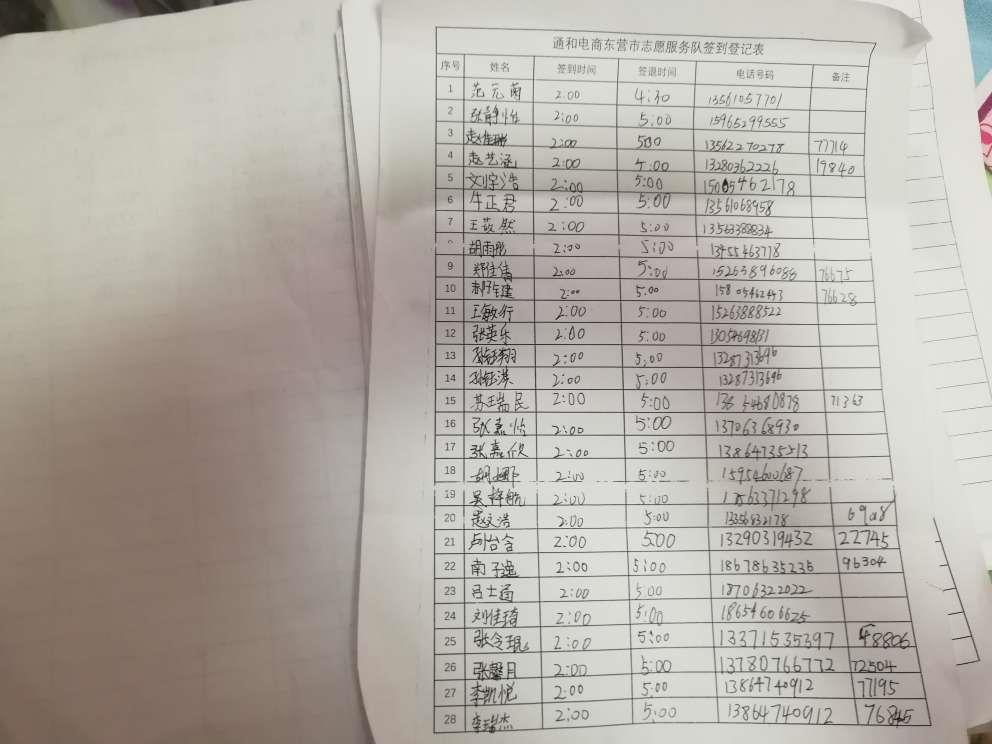 通和电商东营市志愿服务队签到登记表
序号 姓名 签到时间 签退时间 电话号码 备注
1 范元茵 2:00 4:30 13561057701
2 张静怡 2:00 5:00 15965299555
3 赵佳彤 2:00 5:00 13562270278 77714
4 赵艺涵 2:00 4:00 13280362226 19840
5 文宇浩 2:00 5:00 15005462178
6 牛正君 2:00 5:00 13561068958
7 王苡然 2:00 5:00 13563388834
8 胡雨彤 2:00 5:00 13455463778
9 郑佳倩 2:00 5:00 15263896086 76675
10 2:00 5:00 15805462443 76628
11 王敏行 2:00 5:00 15263888522
12 张英乐 2:00 5:00
13 2:00 5:00 13287313696
14 2:00 5:00 13287313696
15 苏玉民 2:00 5:00 71363
16 张嘉怡 2:00 5:00 13706368930
17 张嘉欣 2:00 5:00 13864735213
18 胡娜 2:00 5:00 15954600687
19 吴梓航 2:00 5:00
20 赵文浩 2:00 5:00 6908
21 卢怡含 2:00 5:00 13290319432 22745
22 南子逸 2:00 5:00 18678635236 96304
23 吕士尚 2:00 5:00 18706322022
24 刘佳琦 2:00 5:00 18654606625
25 张令琨 2:00 5:00 13371535397 48806
26 张馨月 2:00 5:00 13780766772 72504
27 李凯悦 2:00 5:00 13864740912 77195
28 李瑞杰 2:00 5:00 13864740912 76845